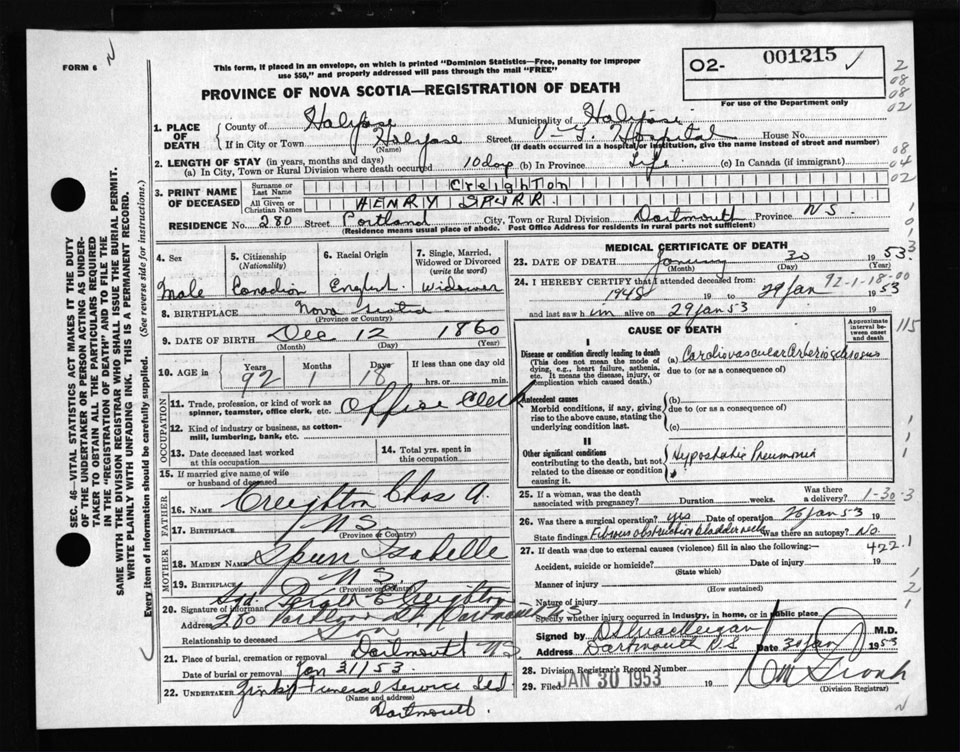 FORM 6
N
This form, if placed in an envelope, on which is printed "Dominion Statistics—Free, penalty for improper
use $50," and properly addressed will pass through the mail "FREE"
PROVINCE OF NOVA SCOTIA—REGISTRATION OF DEATH
O2- 001215
For use of the Department only
2
08
08
02
08
04
02
1. PLACE OF DEATH
County of Halifax Municipality of Halifax
If in City or Town Halifax Street V-G. Hospital House No.
(Name) (If death occurred in a hospital or institution, give the name instead of street and number)
2. LENGTH OF STAY (in years, months and days)
(a) In City, Town or Rural Division where death occurred 10 days (b) In Province Life (c) In Canada (if immigrant)
3. PRINT NAME OF DECEASED
Surname or Last Name Creighton
All Given or Christian Names HENRY SPURR
RESIDENCE No. 280 Street Portland City, Town or Rural Division Dartmouth Province N.S.
(Residence means usual place of abode. Post Office Address for residents in rural parts not sufficient)
4. Sex
Male
5. Citizenship
(Nationality)
Canadian
6. Racial Origin
English
7. Single, Married,
Widowed or Divorced
(write the word)
Widower
8. BIRTHPLACE Nova Scotia
(Province or Country)
9. DATE OF BIRTH Dec 12 1860
(Month) (Day) (Year)
10. AGE in
Years Months Days If less than one day old
92 1 18 hrs. or min.
OCCUPATION
11. Trade, profession, or kind of work as
spinner, teamster, office clerk, etc. Office Clerk
12. Kind of industry or business, as cotton-
mill, lumbering, bank, etc.
13. Date deceased last worked
at this occupation
14. Total years spent in
this occupation
15. If married give name of wife
or husband of deceased
FATHER
16. Name Creighton Chas A.
17. Birthplace N.S.
MOTHER
18. MAIDEN NAME Spurr Isabelle
19. Birthplace N.S.
20. Signature of informant Sgd. Creighton
Address 280 Portland St. Dartmouth N S
Relationship to deceased Son
21. Place of burial, cremation or removal Dartmouth N.S.
Date of burial or removal Jan 31/53.
22. UNDERTAKER Zinks Funeral Service Ltd
(Name and address)
Dartmouth.
MEDICAL CERTIFICATE OF DEATH
23. DATE OF DEATH January 30 1953
(Month) (Day) (Year)
24. I HEREBY CERTIFY that I attended deceased from:
92-1-18-00
1948 19 to 29 Jan 1953
and last saw him alive on 29 Jan 53 19
CAUSE OF DEATH
Approximate
interval be-
tween onset
and death
115
I
Disease or condition directly leading to death
(This does not mean the mode of
dying, e.g., heart failure, asthenia,
etc. It means the disease, injury, or
complication which caused death.)
(a) Cardiovascular Arteriosclerosis
due to (or as a consequence of)
Antecedent causes
Morbid conditions, if any, giving
rise to the above cause, stating the
underlying condition last.
(b)
due to (or as a consequence of)
(c)
II
Other significant conditions
contributing to the death, but not
related to the disease or condition
causing it.
Hypostatic Pneumonia
25. If a woman, was the death
associated with pregnancy? Duration weeks. Was there
a delivery? 1-30-3
26. Was there a surgical operation? yes Date of operation 26 Jan 53 19
State findings Fibrous obstruction bladder neck Was there an autopsy? No.
27. If death was due to external causes (violence) fill in also the following:— 422.1
Accident, suicide or homicide? Date of injury 19
(State which)
Manner of injury
(How sustained)
Nature of injury
Specify whether injury occurred in industry, in home, or in public place
Signed by M.D.
Address Dartmouth N.S Date 30 Jan 1953
28. Division Registrar's Record Number
29. Filed JAN 30 1953 19
(Division Registrar)
N
SEC. 46—VITAL STATISTICS ACT MAKES IT THE DUTY
OF THE UNDERTAKER OR PERSON ACTING AS UNDER-
TAKER TO OBTAIN ALL THE PARTICULARS REQUIRED
IN THE "REGISTRATION OF DEATH" AND TO FILE THE
SAME WITH THE DIVISION REGISTRAR WHO SHALL ISSUE THE BURIAL PERMIT.
WRITE PLAINLY WITH UNFADING INK. THIS IS A PERMANENT RECORD.
Every item of information should be carefully supplied. (See reverse side for instructions.)